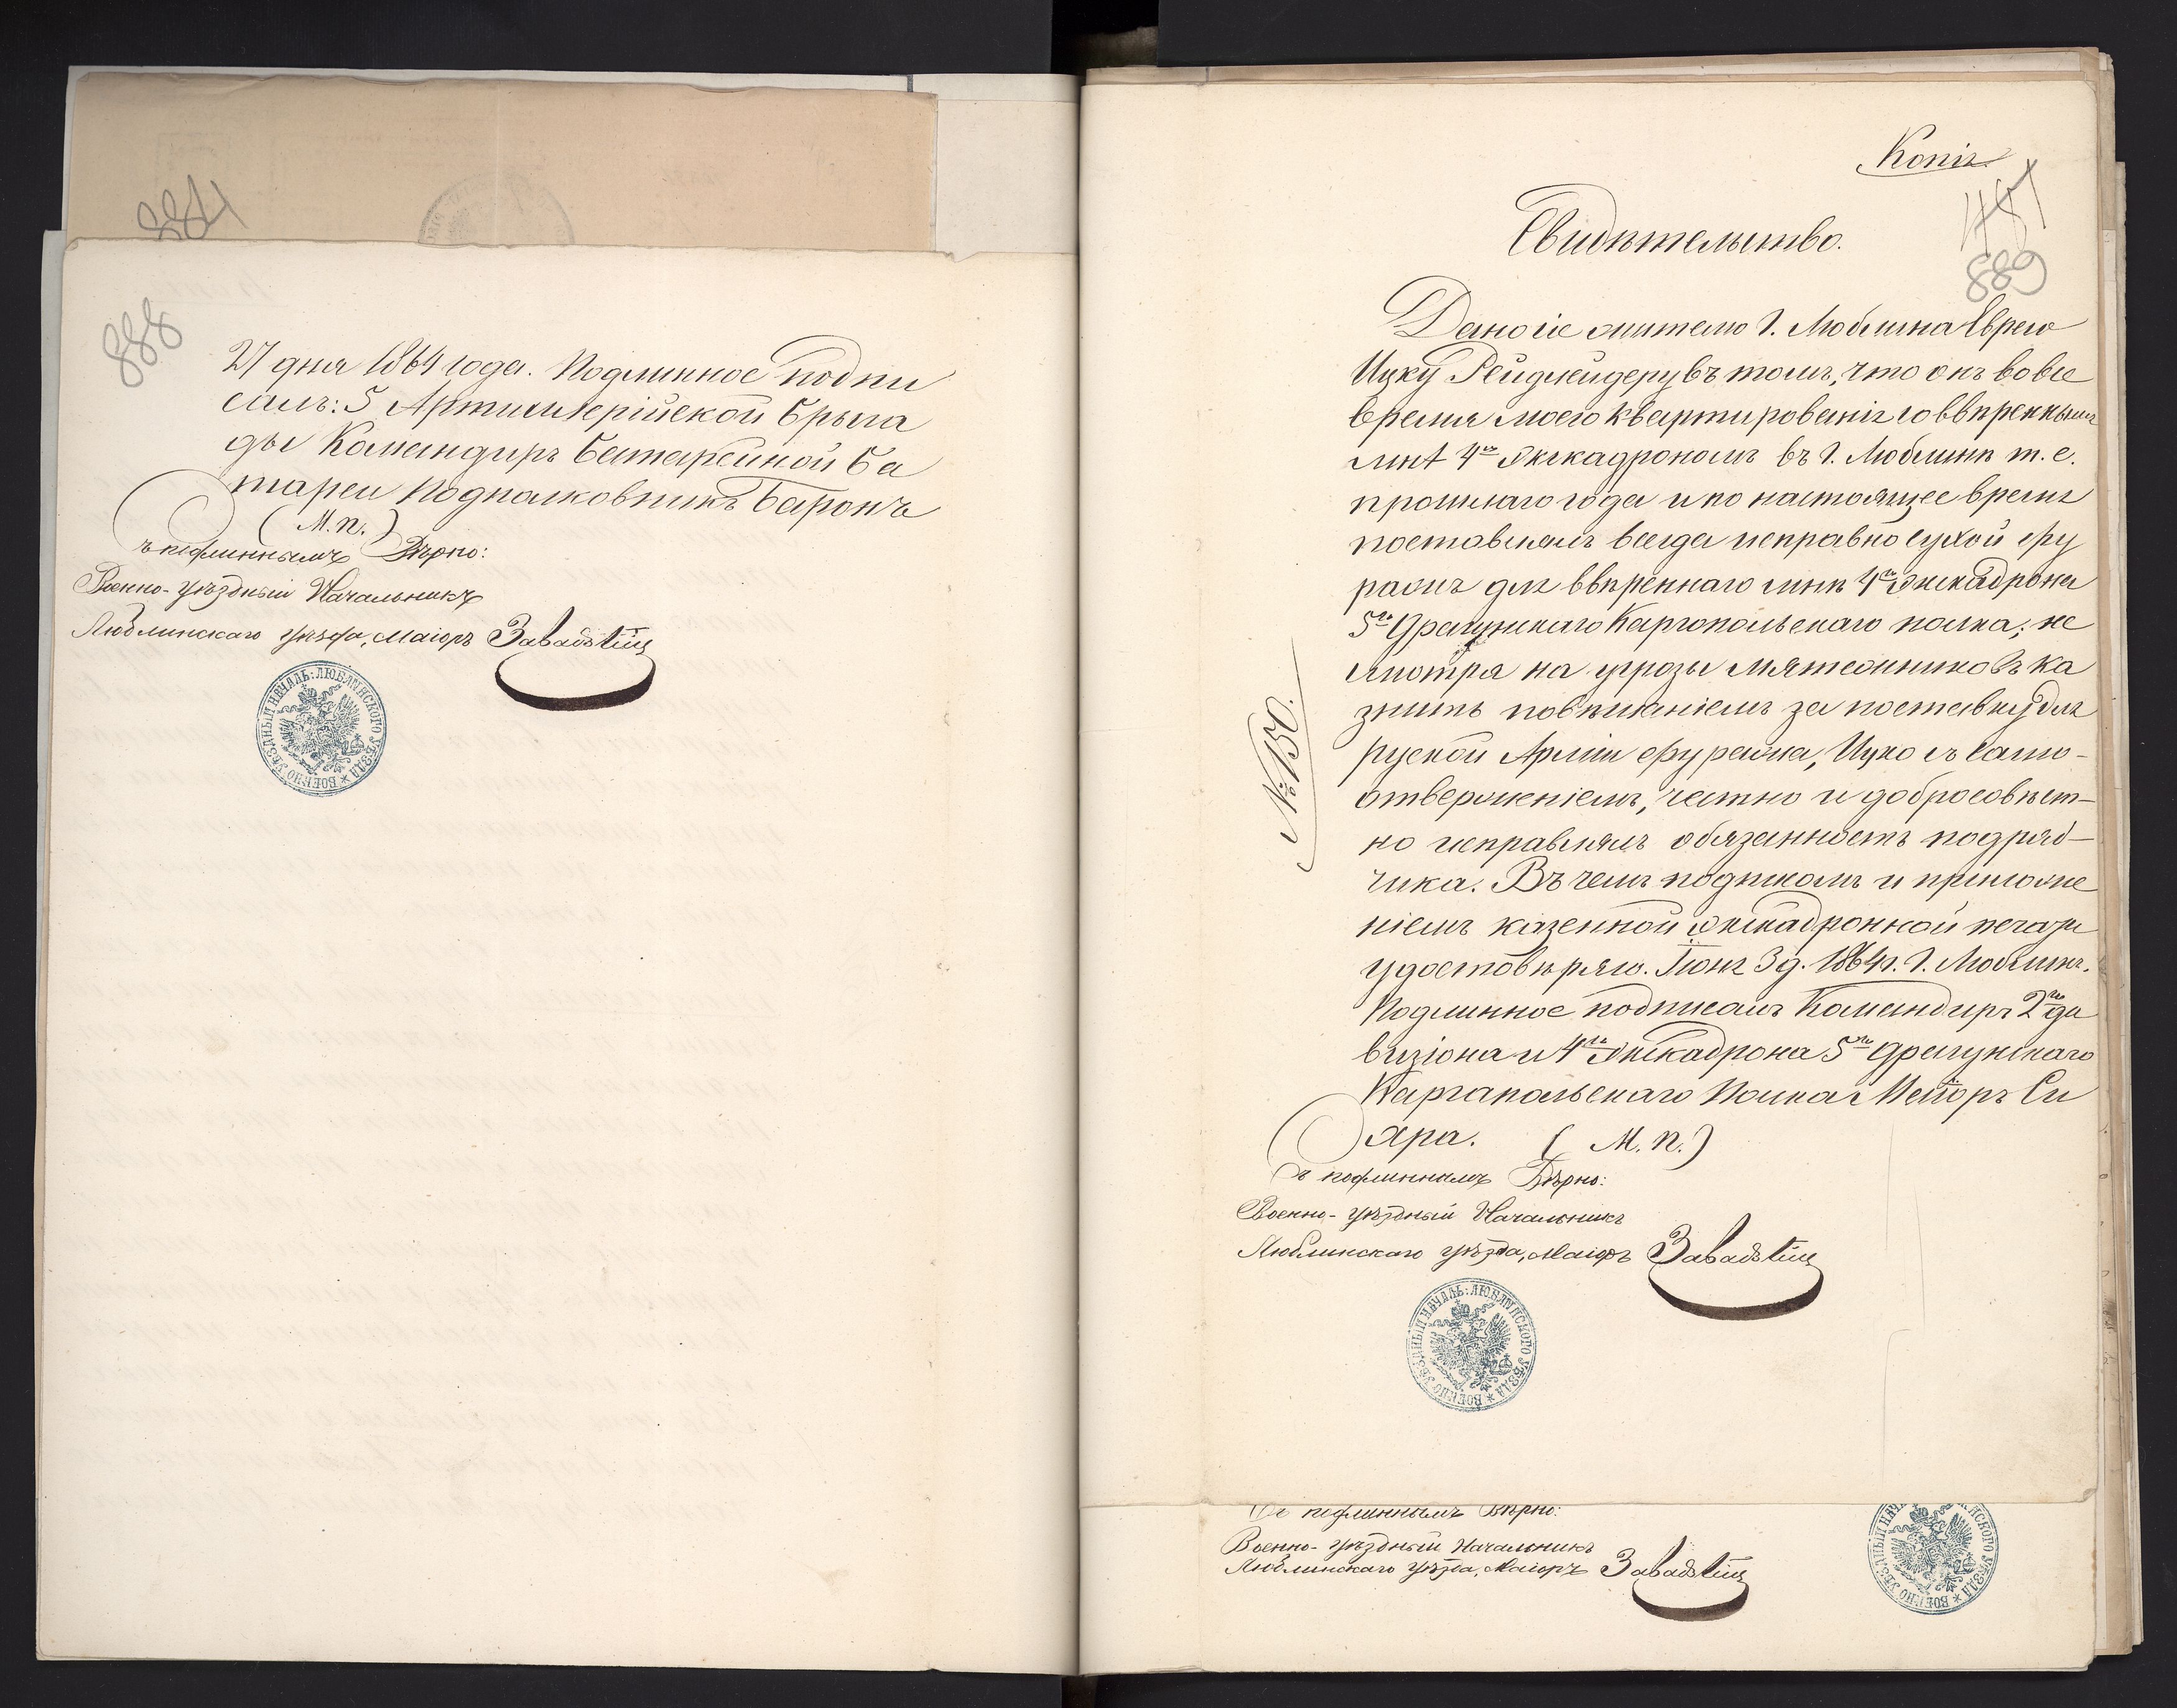 884
888
27 дня 1864 года. Подлинное подпи
салъ: 5 Артиллерійской Брыга
ды Командиръ Батарейной Ба
тареи Подполковникъ Баронъ
(М.п.)
Съ подлиннымъ Вѣрно:
Военно-Уѣздный Начальникъ
Люблинскаго Уѣзда, Маіоръ
ВОЕННО УѢЗДНЫЙ НАЧАЛЬ: ЛЮБЛИНСКОГО УѢЗДА *
Копія
487
889
Свидѣтельство.
Даногіе жителю г. Люблина Еврею
Ицку Рейдлейдеру въ томъ, что онъ во все
время моего квартированія со ввѣреннымъ
мнѣ 4мъ Эскадрономъ въ г. Люблинѣ т. е.
прошлаго года и по настоящее время
поставлялъ всегда исправно сухой фу
ражъ для ввѣреннаго мнѣ 4го Эскадрона
5го Драгунскаго Каргопольскаго полка; не
смотря на угрозы мятежниковъ ка
знить повѣшеніемъ за поставку для
руской Арміи фуража, Ицко съ само-
отверженіемъ, честно и добросовѣст-
но исправлялъ обязанность подряд-
чика. Въ чемъ подписомъ и приложе
ніемъ казенной Эскадронной печати
удостовѣряю. Іюня 3 д. 1864 г. г. Люблинъ.
Подлинное подписалъ Командиръ 2го ди
визіона и 4го Эскадрона 5го Драгунскаго
Каргапольскаго Полка Маіоръ Си
хра. (М.п.)
№ 150.
Съ подлиннымъ Вѣрно:
Военно-Уѣздный Начальникъ
Люблинскаго Уѣзда, Маіоръ
ВОЕННО УѢЗДНЫЙ НАЧАЛЬ: ЛЮБЛИНСКОГО УѢЗДА *
Съ подлиннымъ Вѣрно:
Военно-Уѣздный Начальникъ
Люблинскаго Уѣзда, Маіоръ